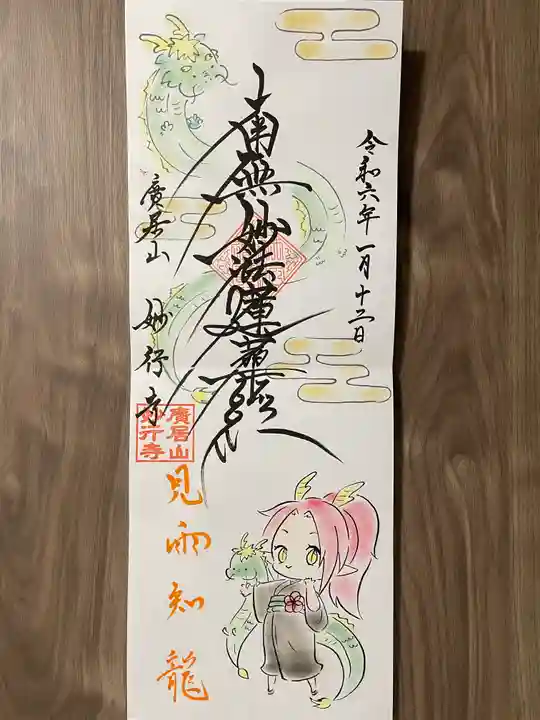 令和六年 一月十二日
南無妙法蓮華経
廣居山 妙行寺
廣居山
妙行寺
見雨知龍